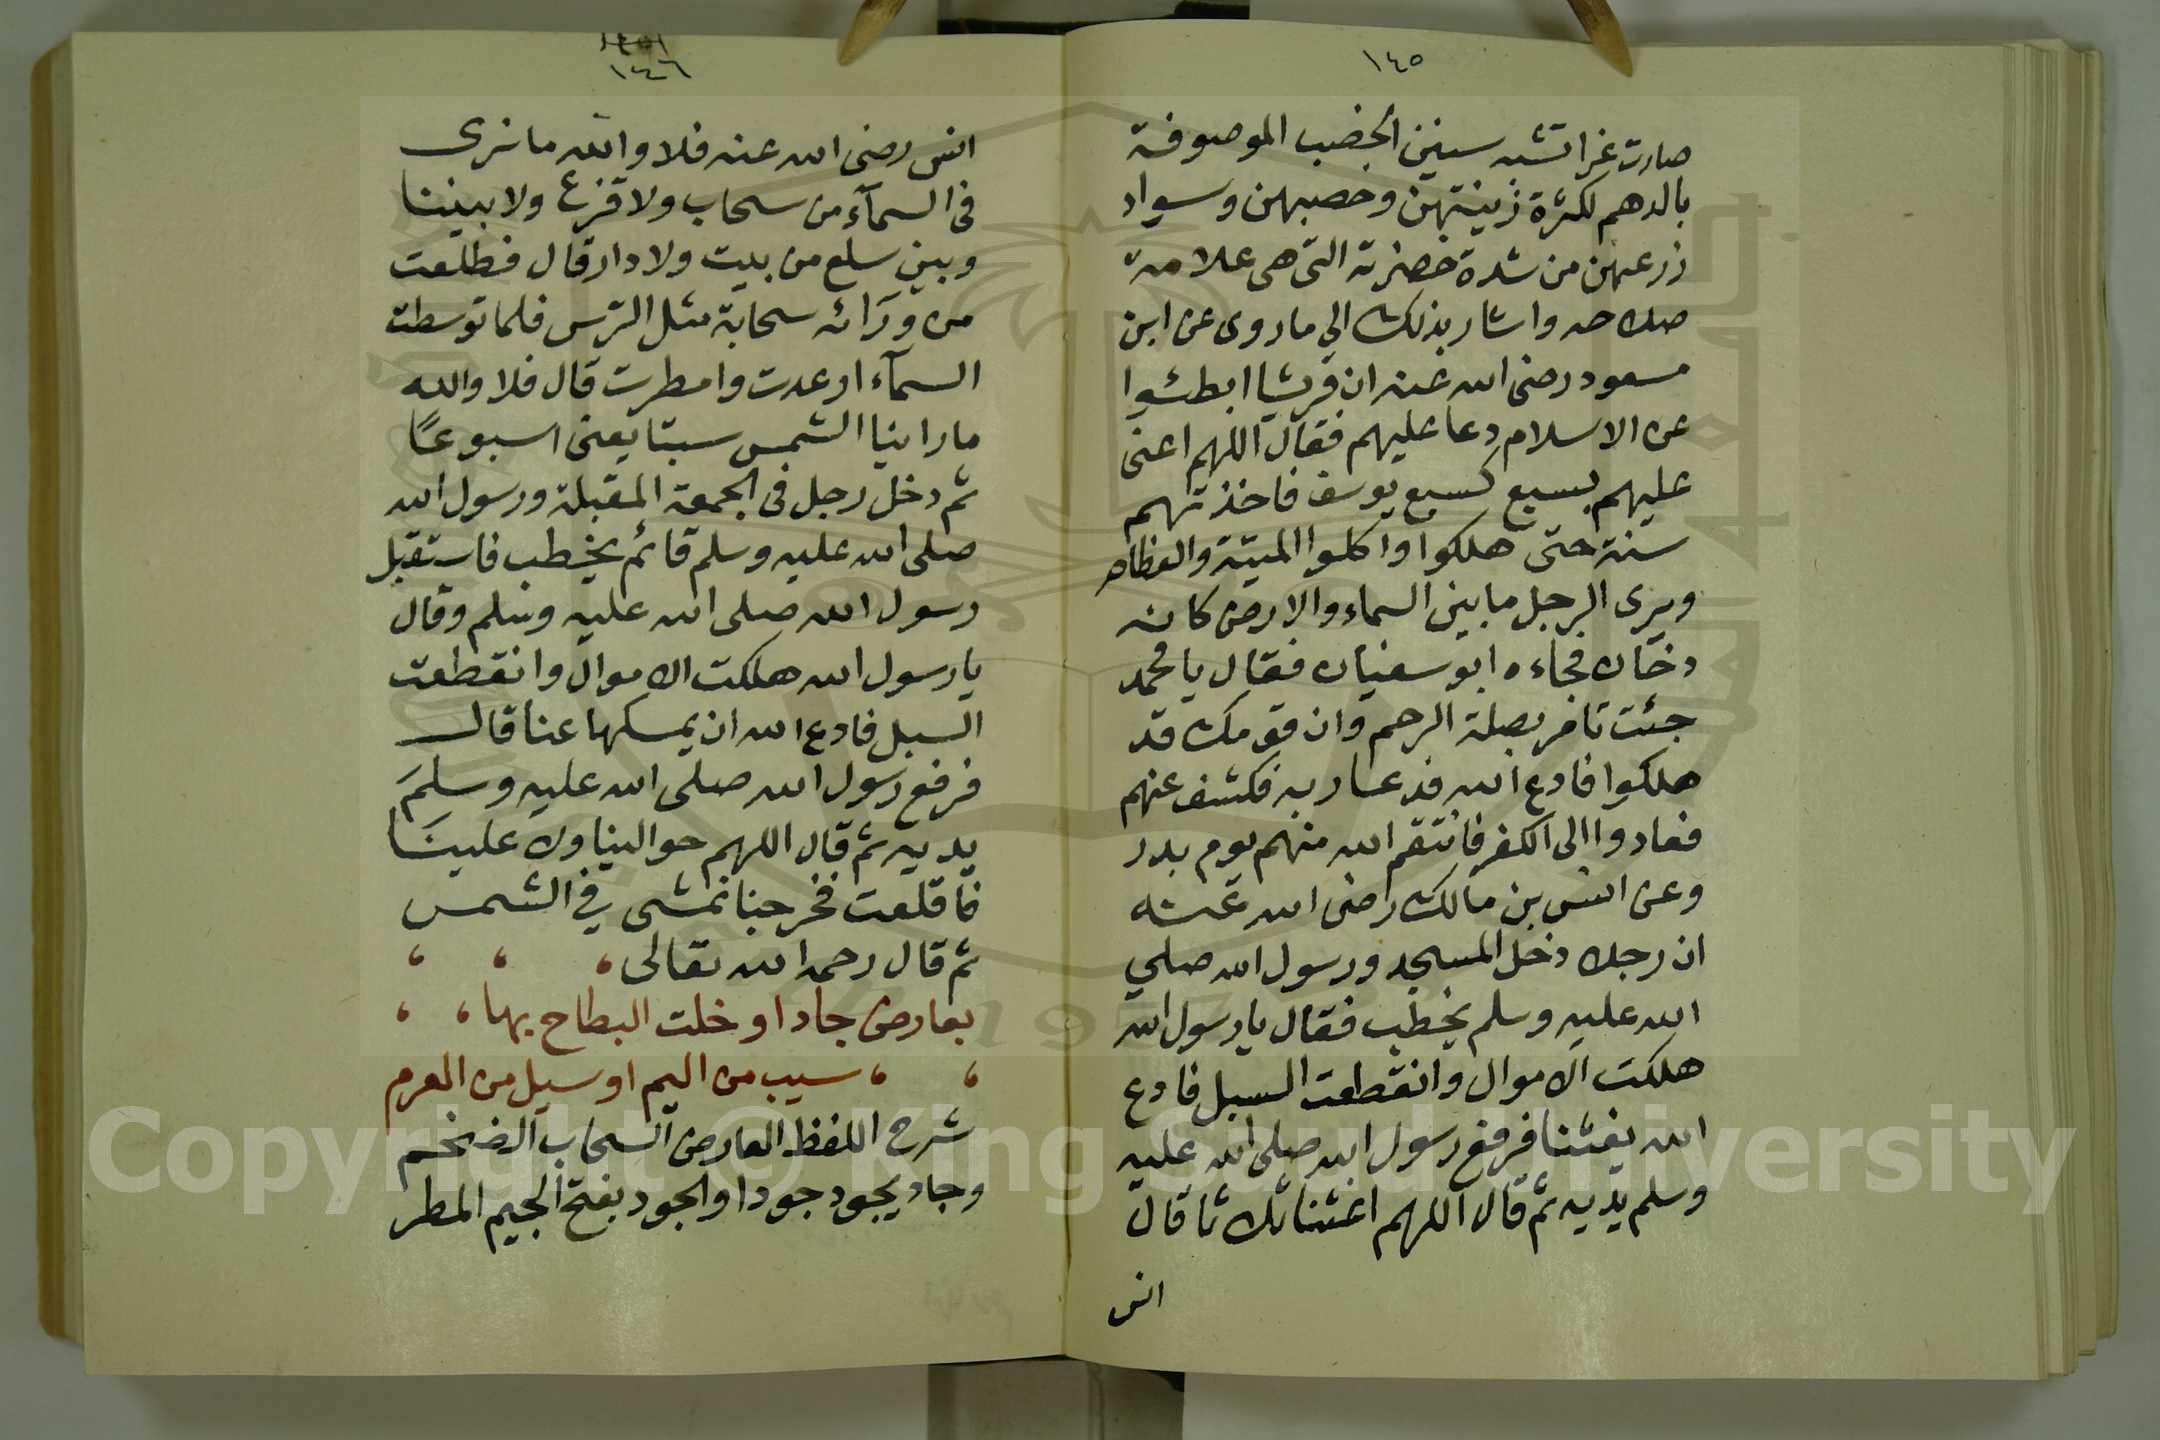 ١٤٥
صارت غرا تشبه سنين الخصب الموصوفة
بالدهم لكثرة زينتهن وخصبهن وسواد
زرعهن من شدة خضرته التى هى علامة
صلاحه واشار بذلك الي ما روى عن ابن
مسعود رضى الله عنه ان قريشا ابطئوا
عن الاسلام دعا عليهم فقال اللهم اعنى
عليهم بسبع كسبع يوسف فاخذتهم
سنة حتى هلكوا واكلوا الميتة والعظام
ويرى الرجل ما بين السماء والارض كانه
دخان فجاءه ابو سفيان فقال يا محمد
جئت تامر بصلة الرحم وان قومك قد
هلكوا فادع الله فدعا ربه فكشف عنهم
فعادوا الى الكفر فانتقم الله منهم يوم بدر
وعن انس بن مالك رضى الله عنه
ان رجلا دخل المسجد ورسول الله صلي
الله عليه وسلم يخطب فقال يا رسول الله
هلكت الاموال وانقطعت السبل فادع
الله يغثنا فرفع رسول الله صلى الله عليه
وسلم يديه ثم قال اللهم اغثنا ثلاثا قال
انس
١٤٦
انس رضى الله عنه فلا والله ما نرى
فى السمآء من سحاب ولا قزع ولا بيننا
وبين سلع من بيت ولا دار قال فطلعت
من ورائه سحابة مثل الترس فلما توسطت
السمآء ارعدت وامطرت قال فلا والله
ما راينا الشمس سبتا يعنى اسبوعًا
ثم دخل رجل فى الجمعة المقبلة ورسول الله
صلى الله عليه وسلم قائم يخطب فاستقبل
رسول الله صلى الله عليه وسلم وقال
يا رسول الله هلكت الاموال وانقطعت
السبل فادع الله ان يمسكها عنا قال
فرفع رسول الله صلى الله عليه وسلم
يديه ثم قال اللهم حوالينا ولا علينا
فاقلعت فخرجنا نمشى في الشمس
ثم قال رحمه الله تعالى
بعارض جاد او خلت البطاح بها
سيب من اليم او سيل من العرم
شرح اللفظ العارض السحاب الضخم
وجاد يجود جودا والجود بفتح الجيم المطر
Copyright © King Saud University